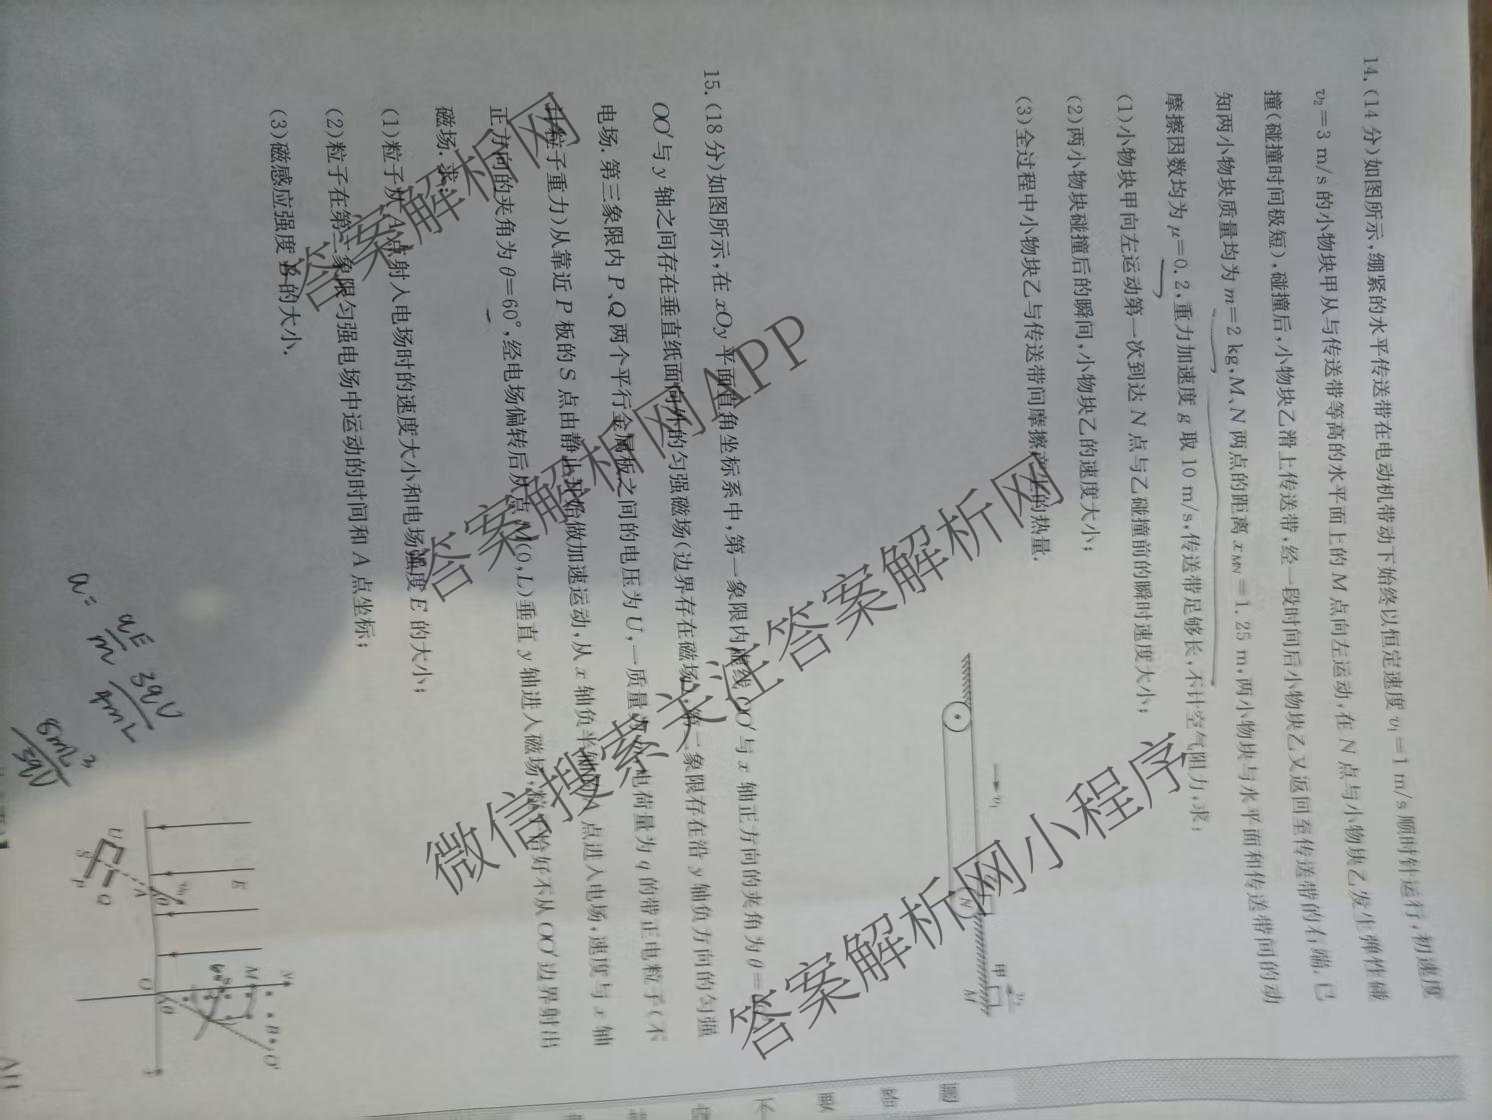 14.(14 分)如图所示,绷紧的水平传送带在电动机带动下始终以恒定速度 v₁=1 m/s 顺时针运行,初速度
v₂=3 m/s 的小物块甲从与传送带等高的水平面上的 M 点向左运动,在 N 点与小物块乙发生弹性碰
撞(碰撞时间极短),碰撞后,小物块乙滑上传送带,经一段时间后小物块乙又返回至传送带的右端.已
知两小物块质量均为 m=2 kg,M、N 两点的距离 x_MN=1.25 m,两小物块与水平面和传送带间的动
摩擦因数均为 μ=0.2,重力加速度 g 取 10 m/s,传送带足够长,不计空气阻力,求:
(1)小物块甲向左运动第一次到达 N 点与乙碰撞前的瞬时速度大小;
(2)两小物块碰撞后的瞬间,小物块乙的速度大小;
(3)全过程中小物块乙与传送带间摩擦产生的热量.
v₁
N
甲
v₂
M
15.(18 分)如图所示,在 xOy 平面直角坐标系中,第一象限内虚线 OO′与 x 轴正方向的夹角为 θ=
OO′与 y 轴之间存在垂直纸面向外的匀强磁场(边界存在磁场),第二象限存在沿 y 轴负方向的匀强
电场.第三象限内 P、Q 两个平行金属板之间的电压为 U,一质量为 电荷量为 q 的带正电粒子(不
计粒子重力)从靠近 P 板的 S 点由静止开始做加速运动,从 x 轴负半轴的 A 点进入电场,速度与 x 轴
正方向的夹角为 θ=60°,经电场偏转后从点 M(0,L)垂直 y 轴进入磁场,粒子恰好不从 OO′边界射出
磁场.求:
(1)粒子从 A 点射入电场时的速度大小和电场强度 E 的大小;
(2)粒子在第二象限匀强电场中运动的时间和 A 点坐标;
(3)磁感应强度 B 的大小.
E
y
M
B
O′
v₀
θ
A
O
θ
U
Q
S
P
a=
qE
m
3qU
4mL
8mL²
3qU
答案解析网
答案解析网APP
微信搜索关注答案解析网
答案解析网小程序